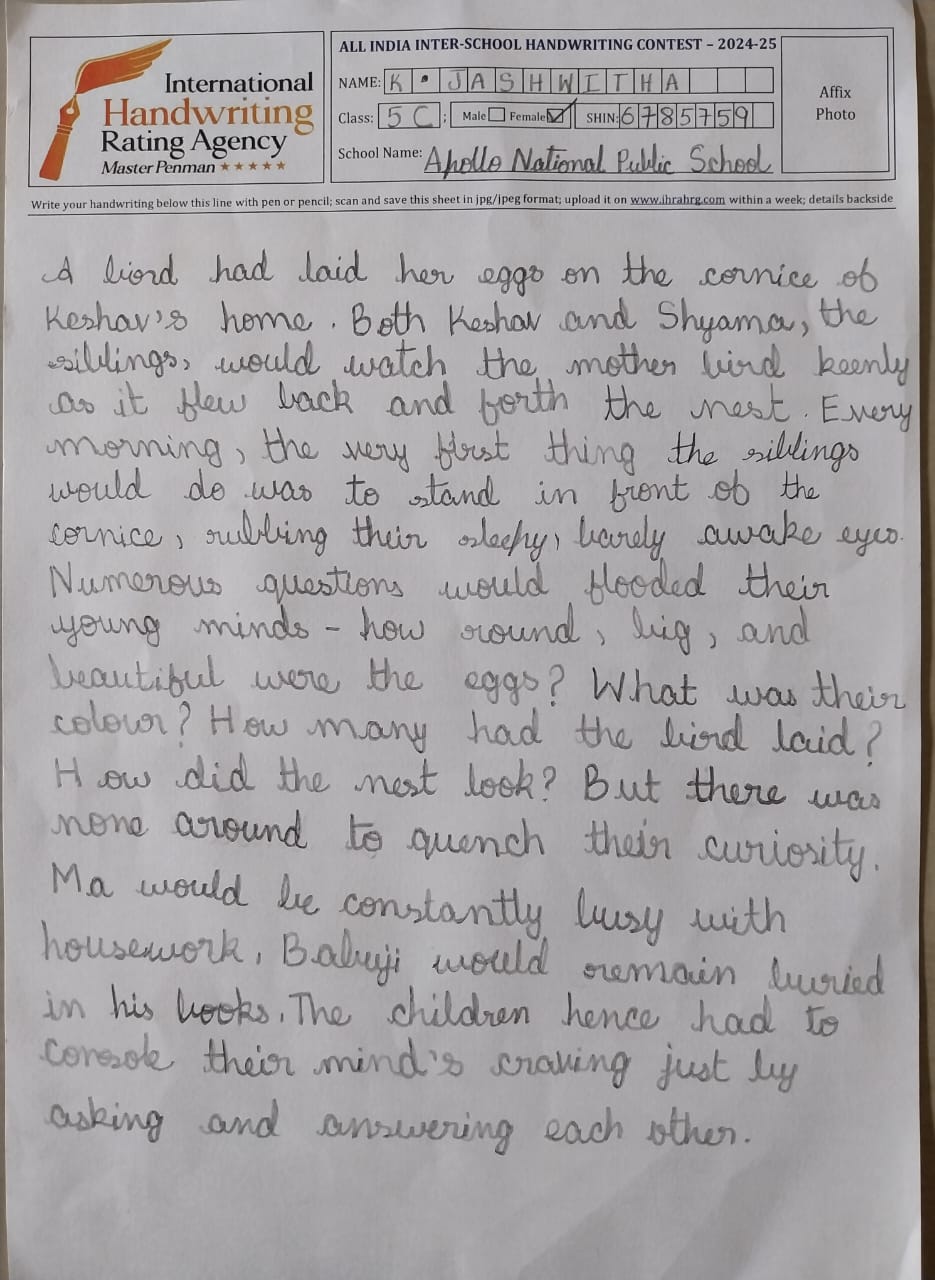 International
Handwriting
Rating Agency
Master Penman ★★★★★
ALL INDIA INTER-SCHOOL HANDWRITING CONTEST – 2024-25
NAME: K. JASHWITHA
Class: 5 C ; Male Female SHIN: 6785759
School Name: Apollo National Public School
Affix
Photo
Write your handwriting below this line with pen or pencil; scan and save this sheet in jpg/jpeg format; upload it on www.ihrahrg.com within a week; details backside
A bird had laid her eggs on the cornice of
Keshav's home. Both Keshav and Shyama, the
siblings, would watch the mother bird keenly
as it flew back and forth the nest. Every
morning, the very first thing the siblings
would do was to stand in front of the
cornice, rubbing their sleepy, barely awake eyes.
Numerous questions would flooded their
young minds – how round, big, and
beautiful were the eggs? What was their
colour? How many had the bird laid?
How did the nest look? But there was
none around to quench their curiosity.
Ma would be constantly busy with
housework, Babuji would remain buried
in his books. The children hence had to
console their mind's craving just by
asking and answering each other.